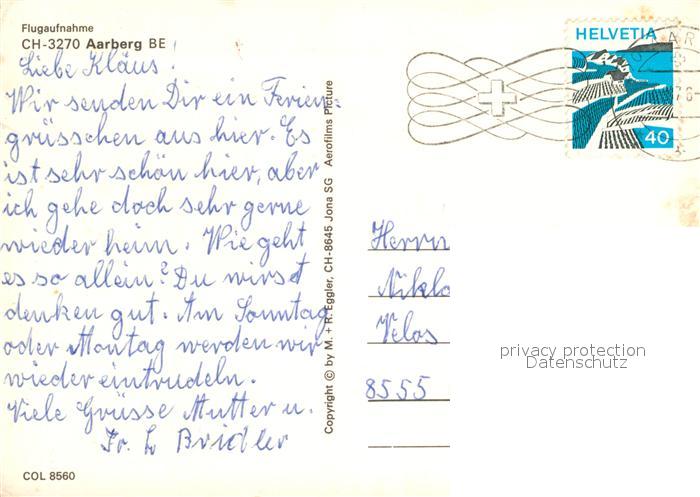 Flugaufnahme
CH-3270 Aarberg BE
Liebe Kläus!
Wir senden Dir ein Ferien-
grüsschen aus hier. Es
ist sehr schön hier, aber
ich gehe doch sehr gerne
wieder heim. Wie geht
es so allein? Du wirst
denken gut. Am Sonntag
oder Montag werden wir
wieder eintrudeln.
Viele Grüsse Mutter u.
Fr. L Bridler
COL 8560
Copyright © by M. + R. Eggler, CH-8645 Jona SG Aerofilms Picture
HELVETIA
40
Herrn
Niklo
Velos
8555
privacy protection
Datenschutz